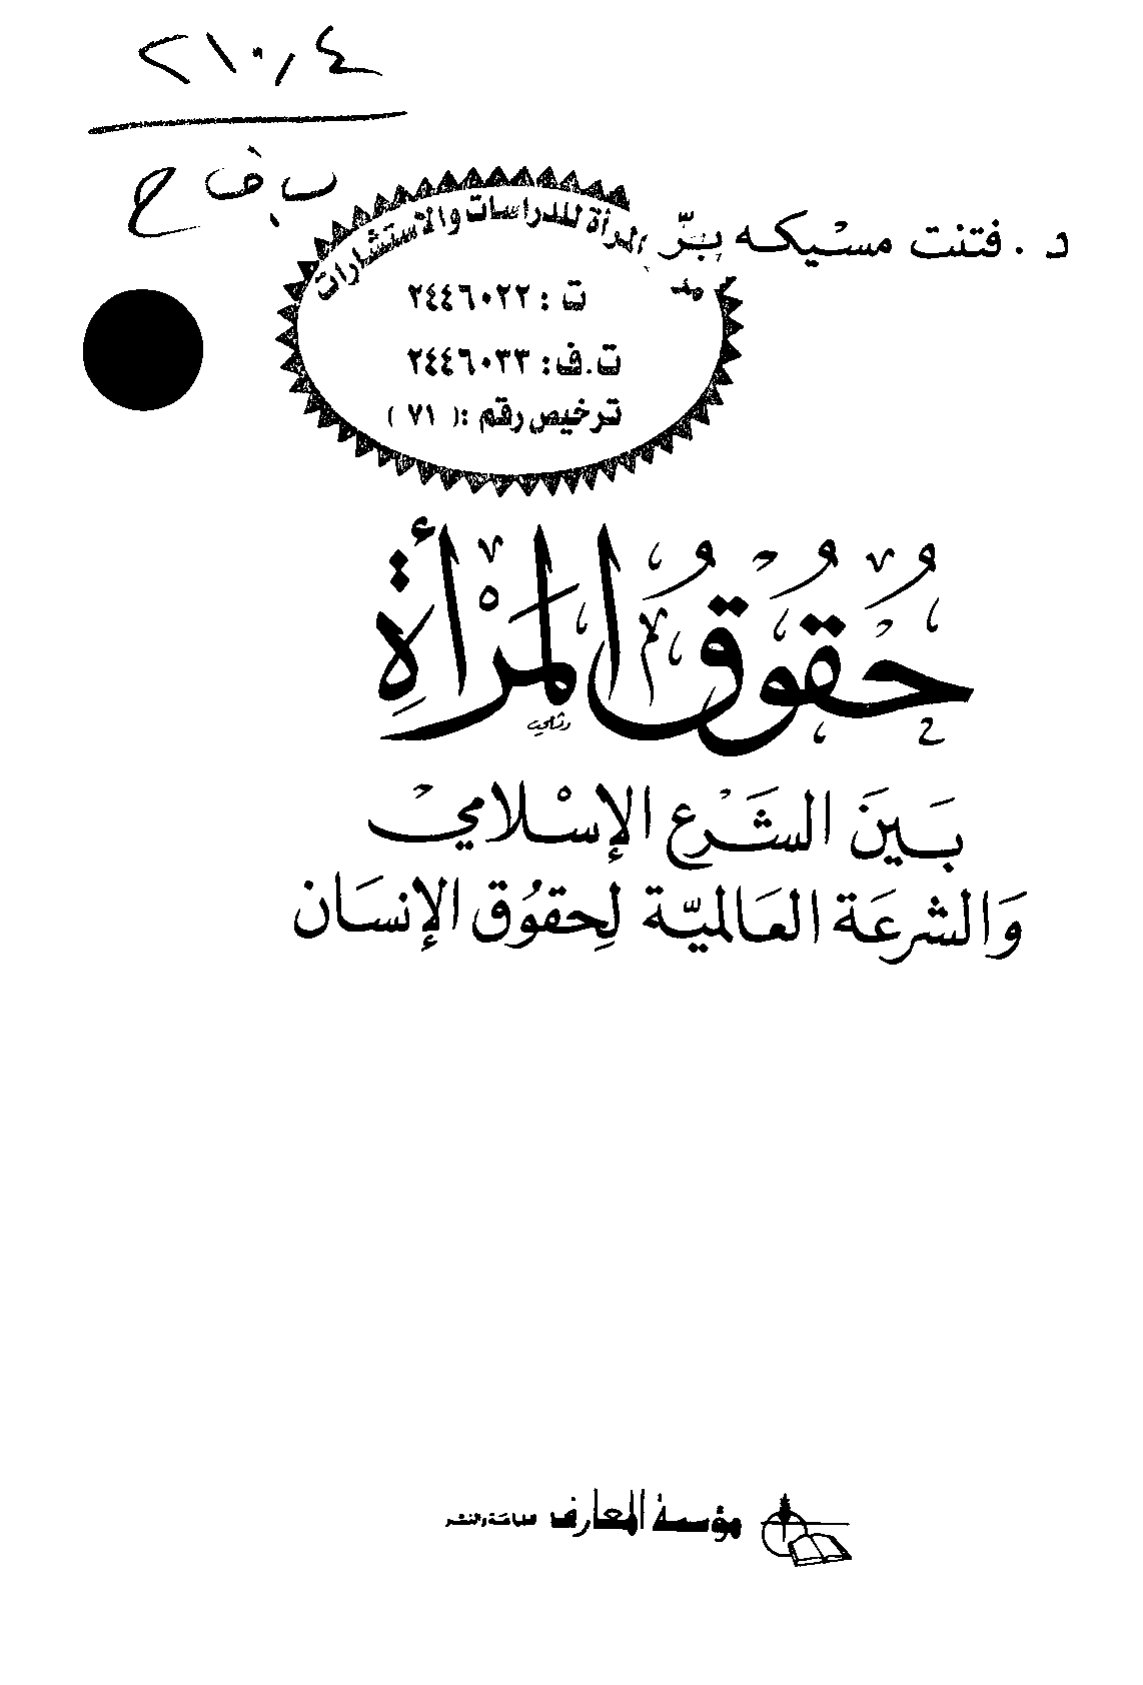 ٢١٠,٤
ب ف ح
د . فتنت مسيكه برّ
المرأة للدراسات والاستشارات
ت : ٢٤٤٦٠٢٢
ت.ف: ٢٤٤٦٠٣٣
ترخيص رقم :( ٧١ )
حُقُوقُ المَرْأَةِ
بَينَ الشَرْع الإسْلامي
وَالشرعَة العَالميّة لِحقوُق الإنسَان
مؤسسة المعارف للطباعة والنشر